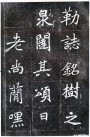 勒誌銘樹之
泉闥其頌曰
老尚蘭嘿